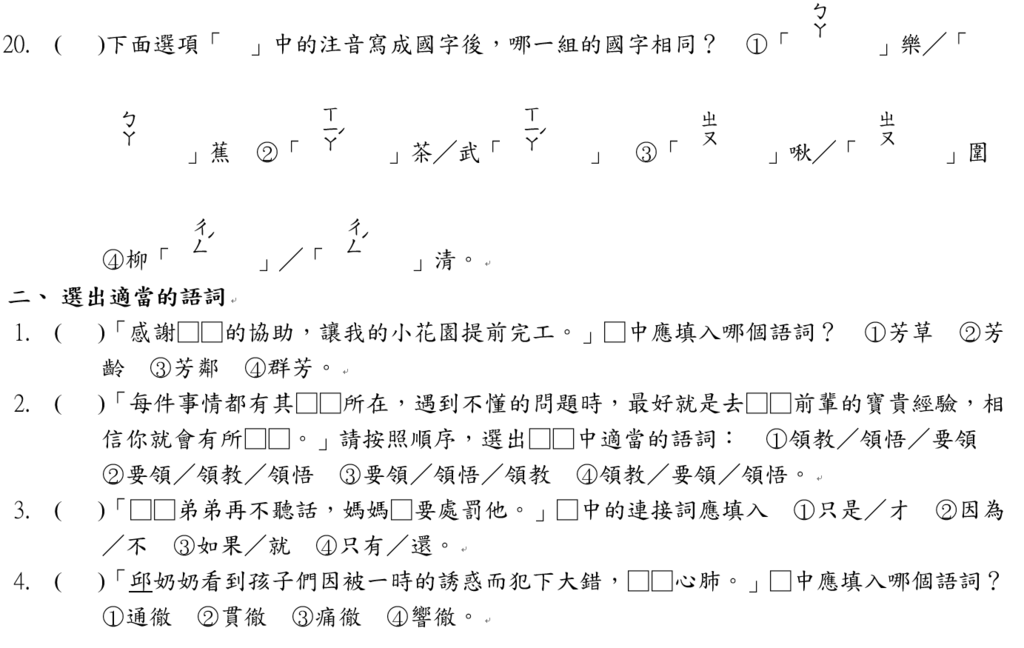 20. ( )下面選項「ㄅㄚ」中的注音寫成國字後，哪一組的國字相同？ ①「ㄅㄚ」樂／「
ㄅㄚ」蕉 ②「ㄒㄧㄚˊ」茶／武「ㄒㄧㄚˊ」 ③「ㄓㄡ」啾／「ㄓㄡ」圍
④柳「ㄔㄥˊ」／「ㄔㄥˊ」清。
二、選出適當的語詞
1. ( )「感謝□□的協助，讓我的小花園提前完工。」□中應填入哪個語詞？ ①芳草 ②芳
齡 ③芳鄰 ④群芳。
2. ( )「每件事情都有其□□所在，遇到不懂的問題時，最好就是去□□前輩的寶貴經驗，相
信你就會有所□□。」請按照順序，選出□□中適當的語詞： ①領教／領悟／要領
②要領／領教／領悟 ③要領／領悟／領教 ④領教／要領／領悟。
3. ( )「□□弟弟再不聽話，媽媽□要處罰他。」□中的連接詞應填入 ①只是／才 ②因為
／不 ③如果／就 ④只有／還。
4. ( )「邱奶奶看到孩子們因被一時的誘惑而犯下大錯，□□心肺。」□中應填入哪個語詞？
①通徹 ②貫徹 ③痛徹 ④響徹。